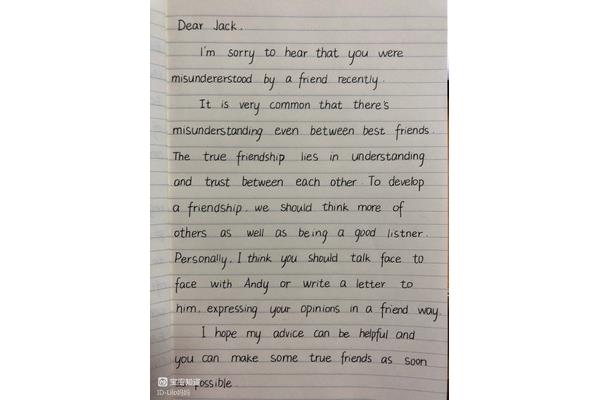 Dear Jack.
I'm sorry to hear that you were
misundererstood by a friend recently.
It is very common that there's
misunderstanding even between best friends.
The true friendship lies in understanding
and trust between each other. To develop
a friendship. we should think more of
others as well as being a good listner.
Personally. I think you should talk face to
face with Andy or write a letter to
him. expressing your opinions in a friend way.
I hope my advice can be helpful and
you can make some true friends as soon
possible.
宝宝知道
ID-Lilo妈妈